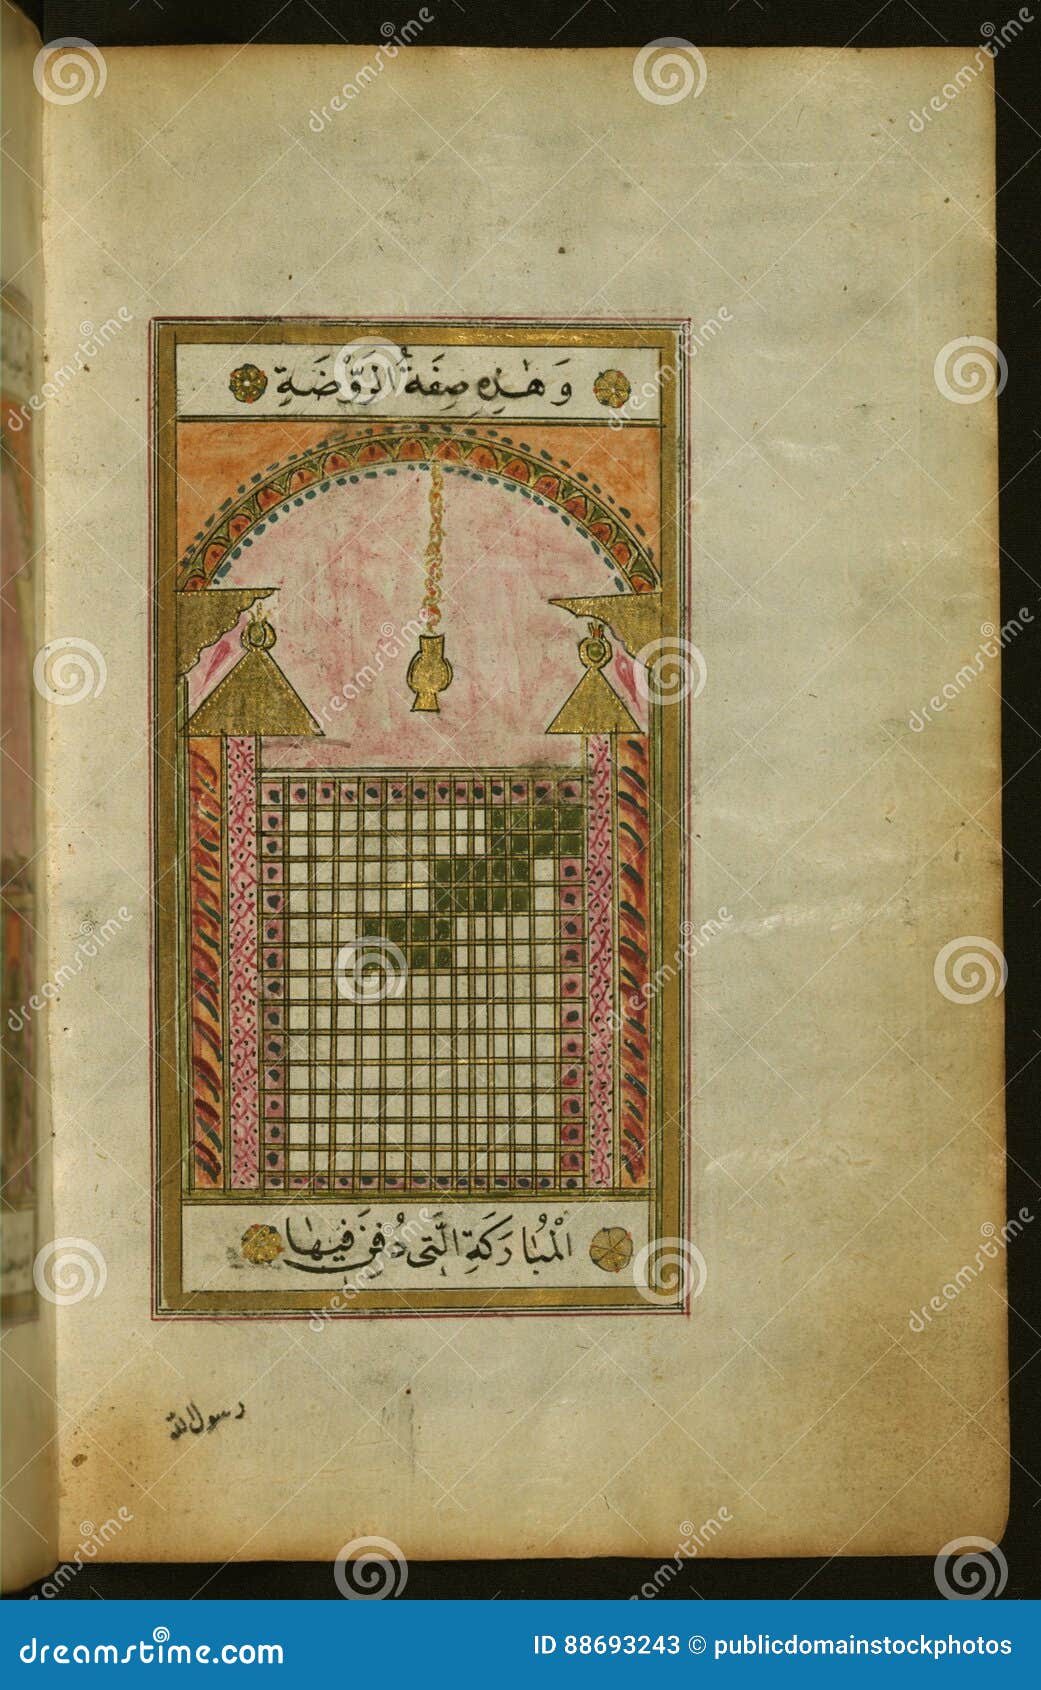 وَهٰذِهِ صِفَةُ الرَّوْضَةِ
الْمُبَارَكَةِ الَّتِى دُفِنَ فِيهَا
رسول الله
dreamstime.com
ID 88693243 © publicdomainstockphotos